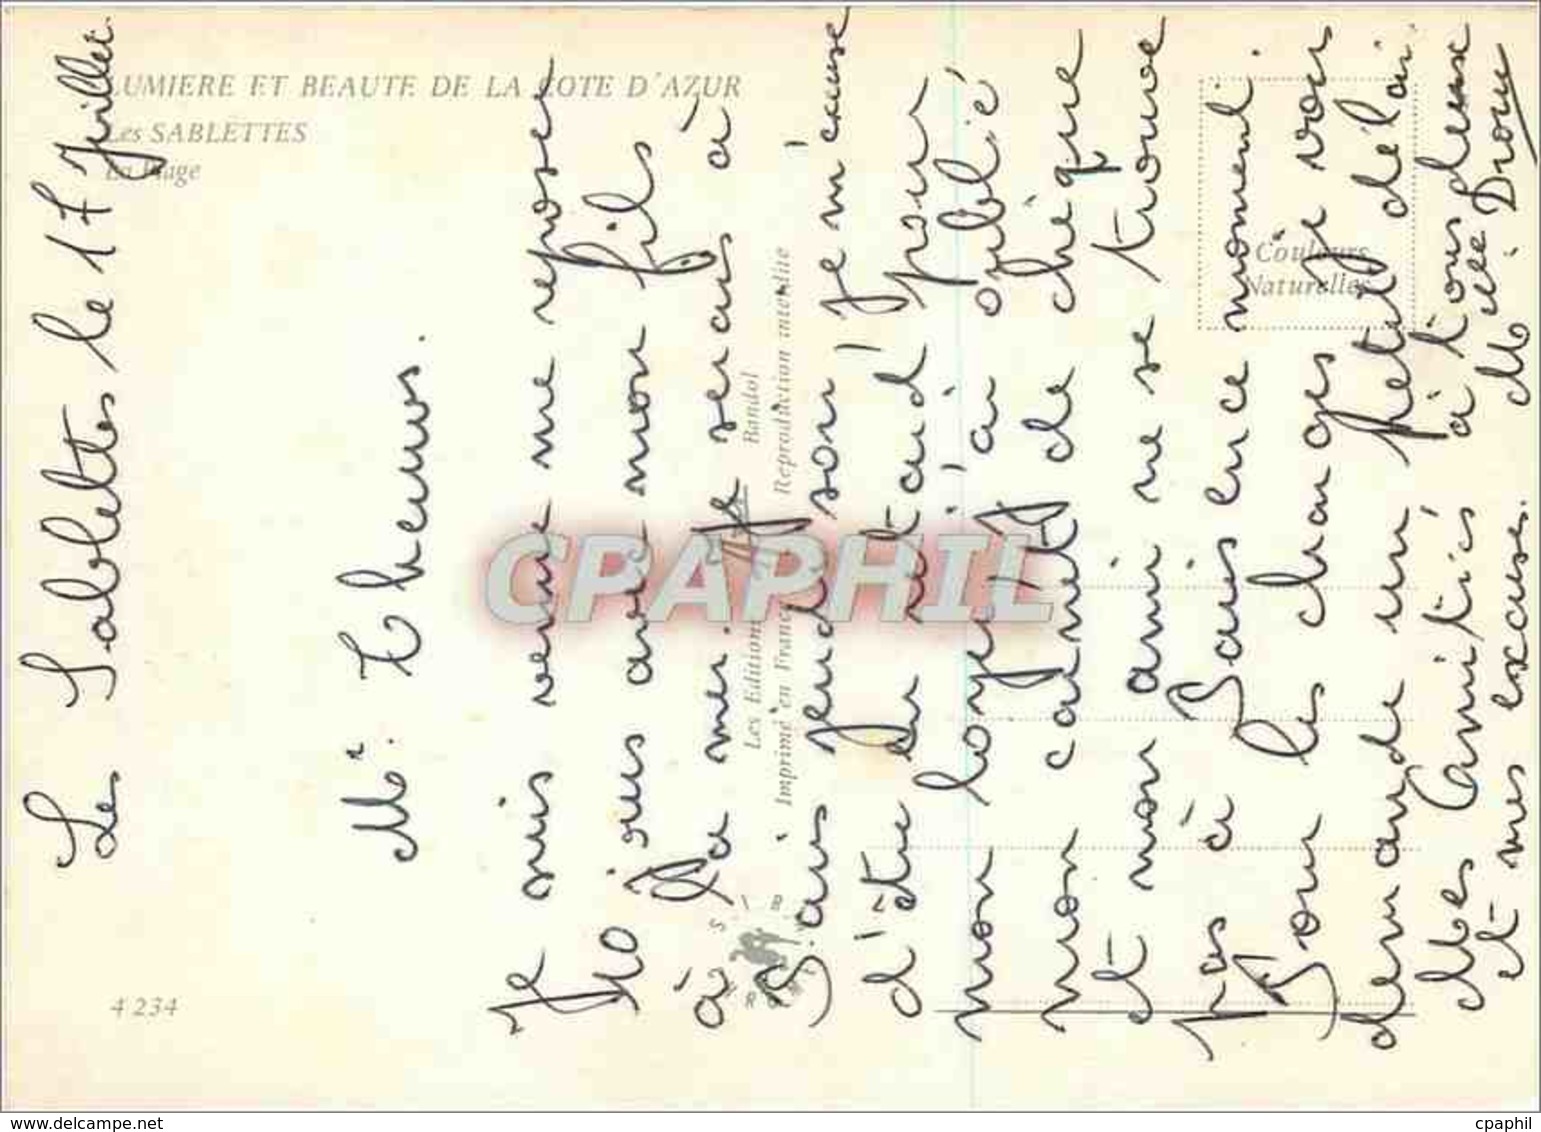 LUMIERE ET BEAUTE DE LA COTE D'AZUR
Les SABLETTES
La Plage
Couleurs
Naturelles
Les Editions Bandol
Imprimé en France Reproduction interdite
4 234
Les Sablettes le 17 Juillet.
Mr.
Je suis venue me reposer
10 jours avec mon fils
à la mer. Je serais à
Paris jeudi soir, je m'excuse
d'être en retard pour
mon loyer j'ai oublié
mon carnet de chèque
et mon ami ne se trouve
pas à Paris en ce moment.
Pour les charges je vous
demande un petit délai.
Mes Amitiés à tous deux
et mes excuses. Melle
CPAPHIL
www.delcampe.net
cpaphil